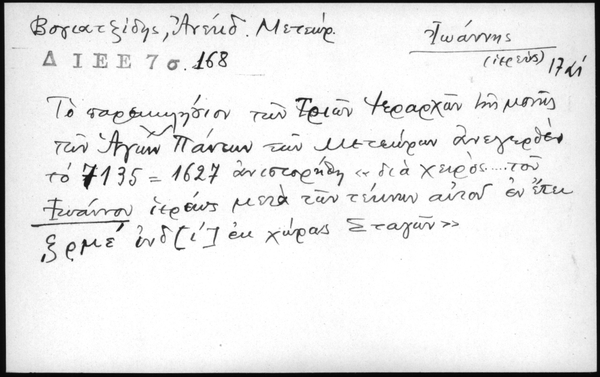 Βογιατζίδης, Ἀνέκδ. Μετεώρ.
Ἰωάννης
(ἱερεύς) 17 αἰ
Δ Ι Ε Ε 7 σ. 168
Τὸ παρεκκλήσιον τῶν Τριῶν Ἱεραρχῶν τῆς μονῆς
τῶν Ἁγίων Πάντων τῶν Μετεώρων ἀνεγερθὲν
τό 7135 = 1627 ἀνιστορήθη «διὰ χειρὸς.... τοῦ
Ἰωάννου ἱερέως μετὰ τῶν τέκνων αὐτοῦ ἐν ἔτει
͵ζρμε΄ ἰνδ [ί] ἐκ χώρας Σταγῶν»